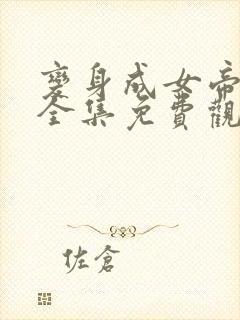 變身成女帝
全集免費觀
佐倉